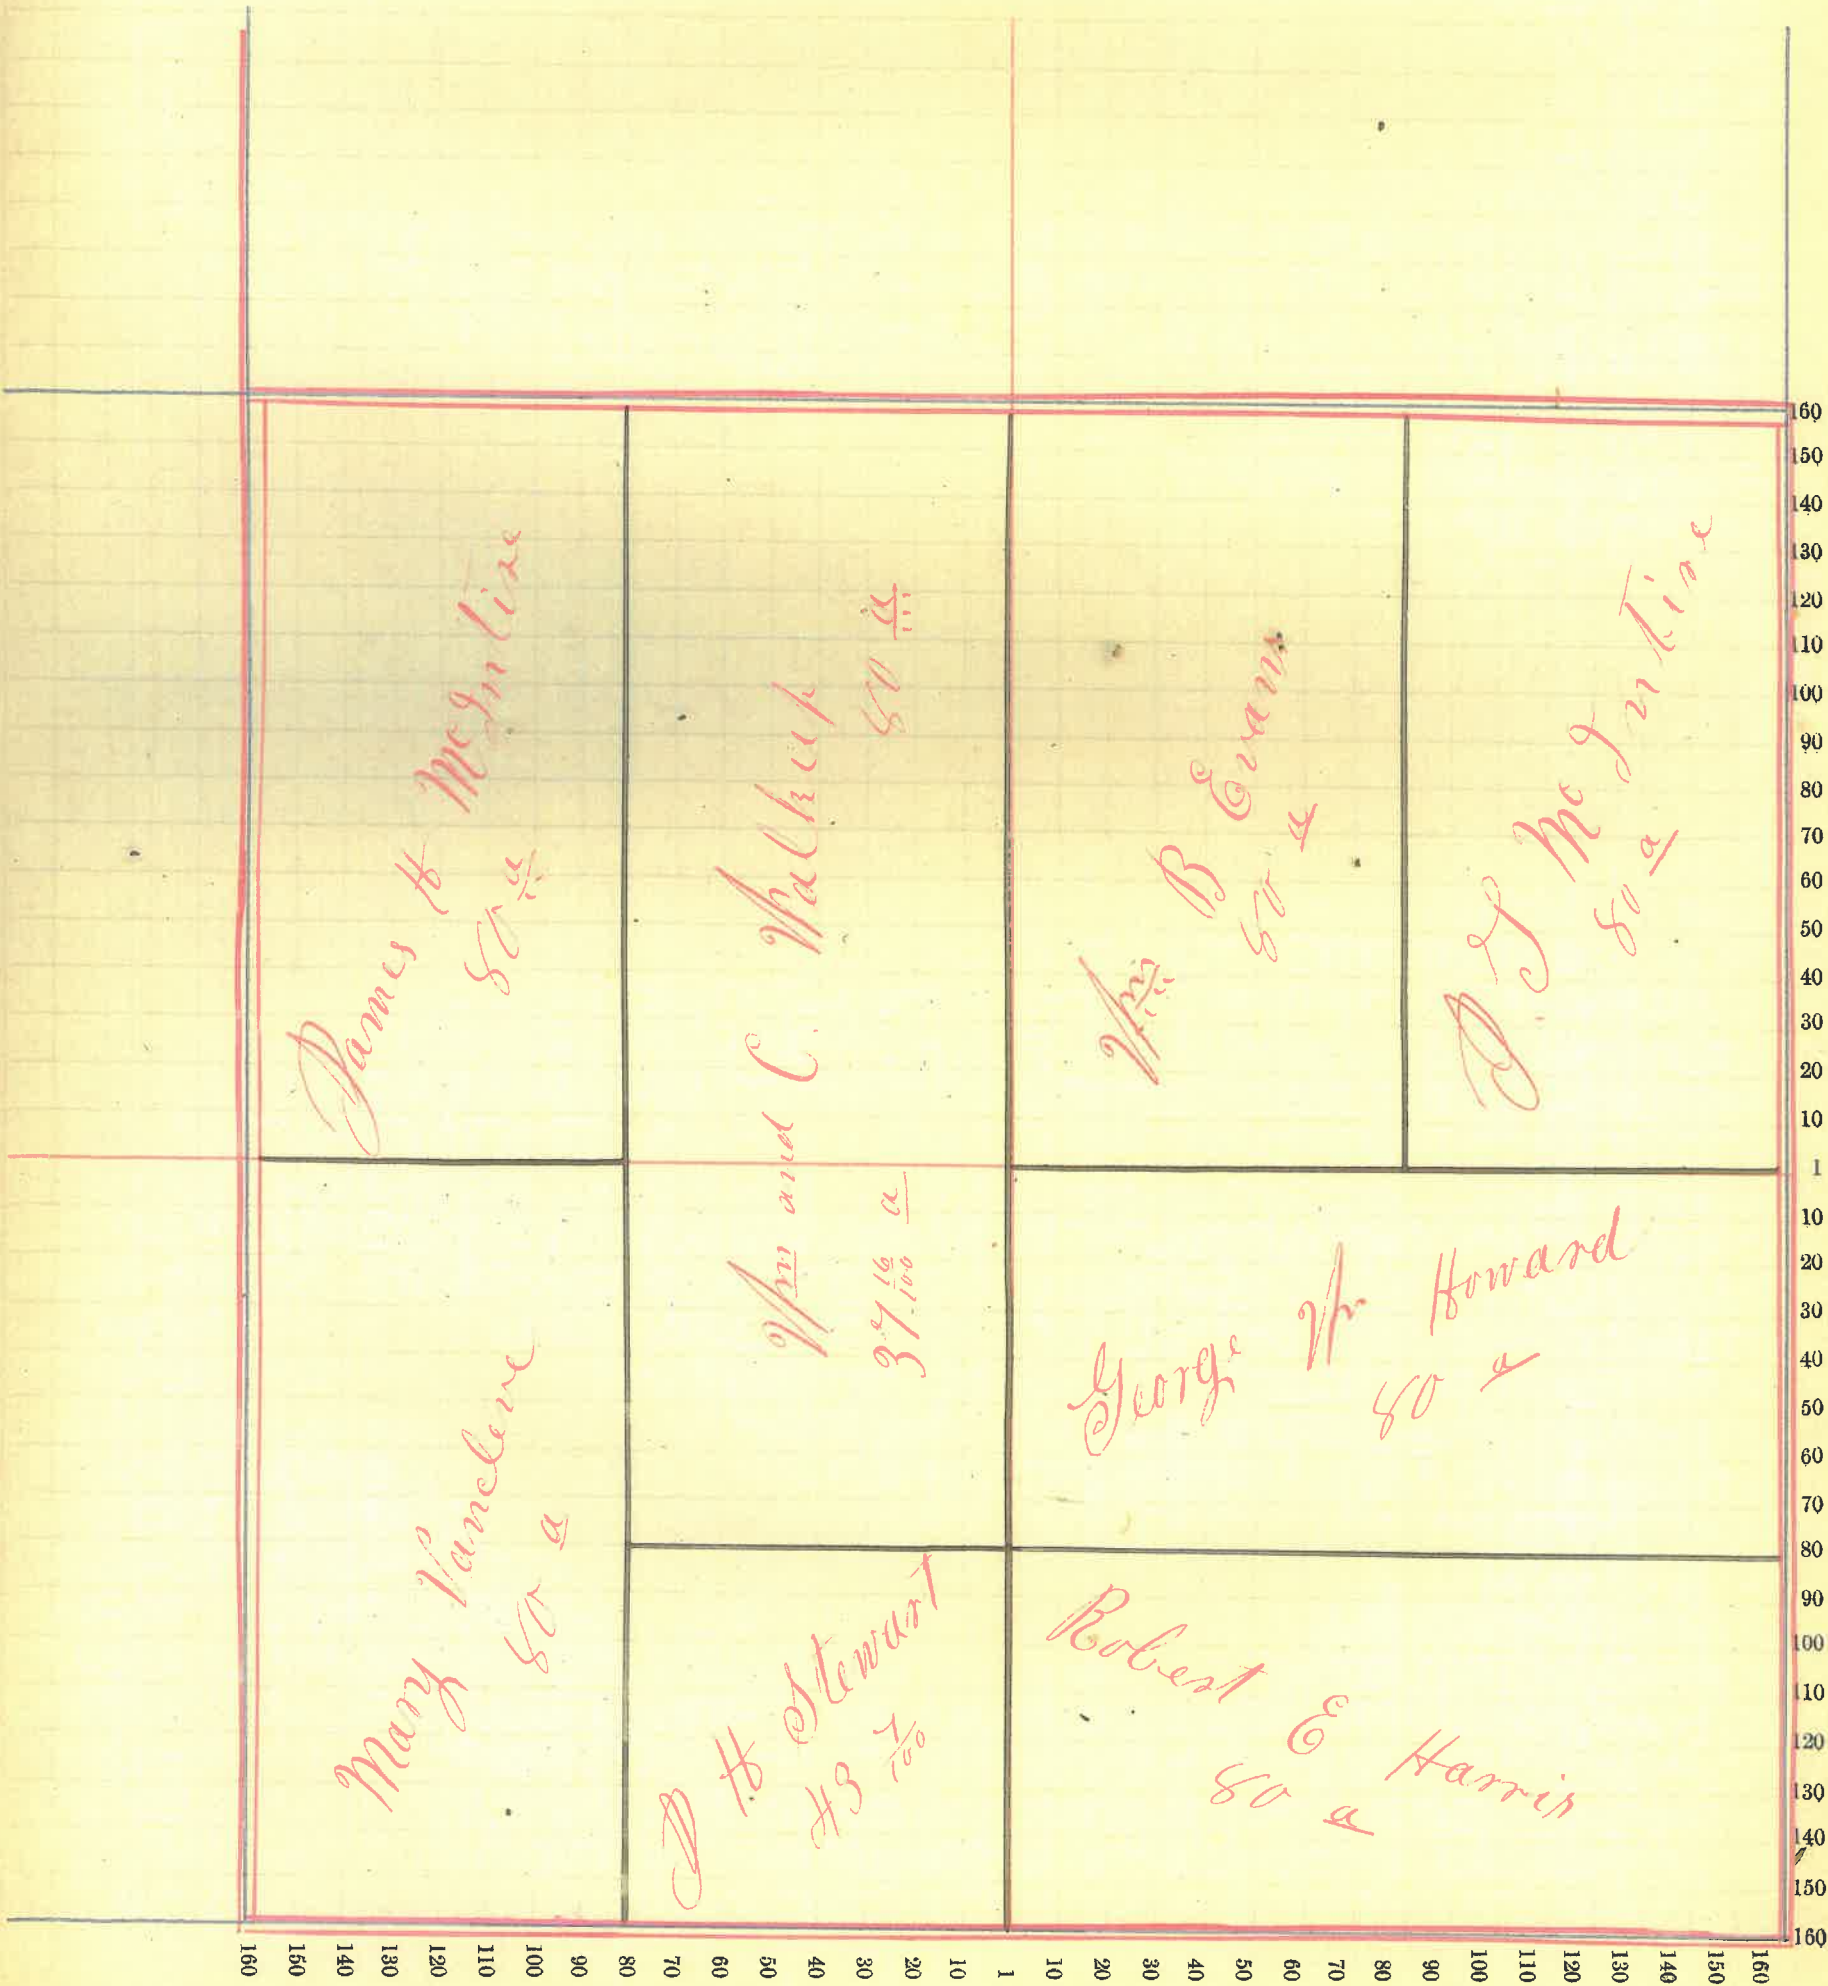 James H McIntire
80 a
Wm and C. Walkup
80 a
37 16/100 a
Wm B Evans
80 a
J. S McIntire
80 a
Mary Vancleve
80 a
J H Stewart
43 7/100
George W Howard
80 a
Robert E Harris
80 a
160
150
140
130
120
110
100
90
80
70
60
50
40
30
20
10
1
10
20
30
40
50
60
70
80
90
100
110
120
130
140
150
160
160 150 140 130 120 110 100 90 80 70 60 50 40 30 20 10 1 10 20 30 40 50 60 70 80 90 100 110 120 130 140 150 160